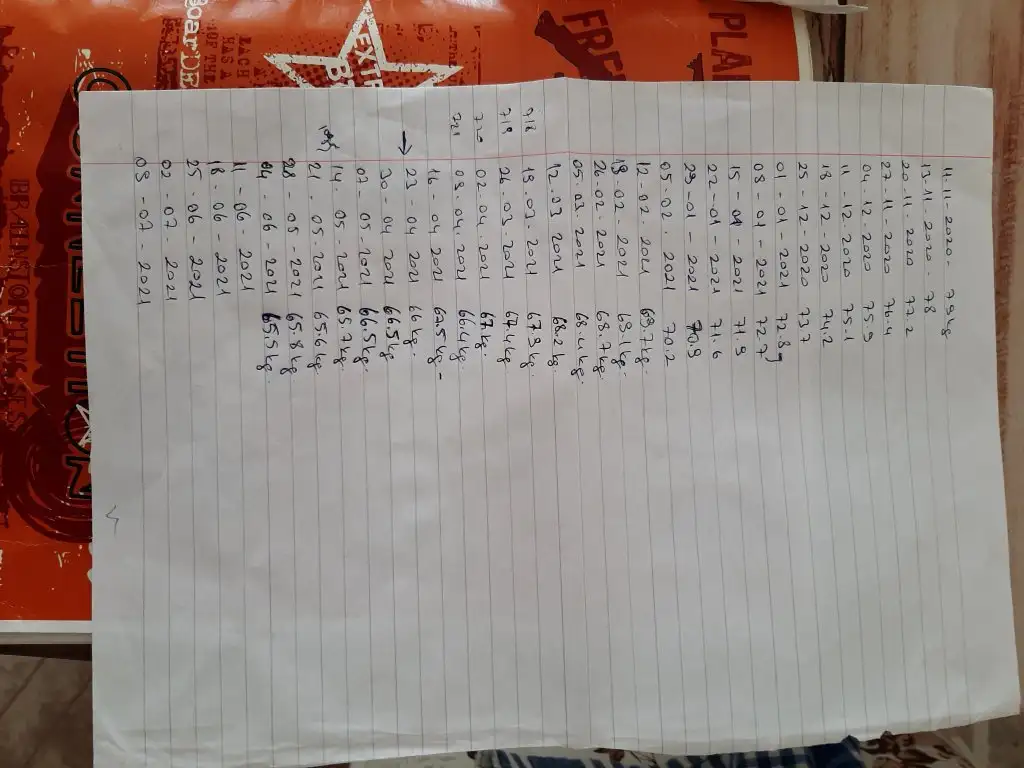 11-11-2020- 79kg
13-11-2020- 78
20-11-2020 77.2
27-11-2020 76.4
04-12-2020 75.9
11-12-2020 75.1
18-12-2020 74.2
25-12-2020 73.7
01-01-2021 72.8g
08-01-2021 72.7
15-01-2021 71.9
22-01-2021 71.6
29-01-2021 70.9
05.02.2021 70.2
12-02-2021 69.7kg
19-02-2021 69.1kg.
26-02-2021 68.7kg.
05.03.2021 68.4kg
12.03.2021 68.2kg
718 19.03.2021 67.9kg.
719 26.03.2021 67.4kg
720 02.04.2021 67kg
721 09.04.2021 66.4kg.
16-04-2021 67.5kg-
→ 23-04-2021 66kg.
30-04-2021 66.5kg
07.05-2021 66.5kg
14.05-2021 65.7kg
21.05.2021 65.6kg
28-05-2021 65.8kg
04-06-2021 65.9kg.
11-06-2021
18-06-2021
25-06-2021
02-07-2021
09-07-2021
PLA
FRE
EXT
B
EACH
HAS A
OF THE
BRAINSTORMING SES